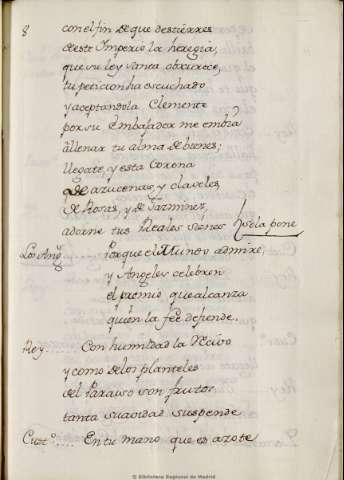 8 con el fin de que destierres
de este Imperio la heregia,
que su ley santa obscurece,
tu peticion ha escuchado
y aceptandola Clemente
por su Embajador me embia
a llenar tu alma de bienes;
llegate, y esta Corona
de azucenas, y claveles,
de Rosas, y de Jazmines,
adorne tus Reales sienes Ysela pone
Los Ang.s ..... Porque el Mundo admire,
y Angeles celebren
el premio que alcanza
quien la feé defiende.
Rey ..... Con humildad la recivo
y como de los planteles
del Paraiso son frutos
tanta suavidad suspende
Cust.o ..... En tu mano que es azote
© Biblioteca Regional de Madrid